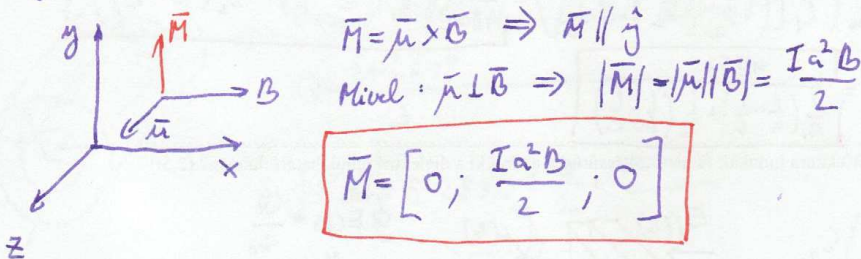 y M̄ B μ̄ x z
M̄ = μ̄ × B̄ ⇒ M̄ ∥ ŷ
Mivel : μ̄ ⊥ B̄ ⇒ |M̄| = |μ̄||B̄| = Ia²B/2
M̄ = [0 ; Ia²B/2 ; 0]